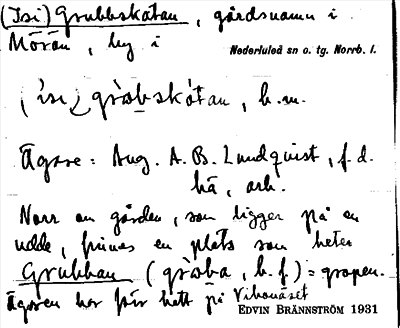 (Isi) Grubbskatan, gårdsnamn i
Mörön, by i
Nederluleå sn o. tg. Norrb. l.
(ìsi) gròbskátan, b.m.
Ägare: Aug. A. B. Lundquist, f.d.
arb.
Norr om gården, som ligger på en
udde, finnes en plats som heter
Grubban (gròba, b.f.) = gropen.
Ägaren har förr hett på
EDVIN BRÄNNSTRÖM 1931